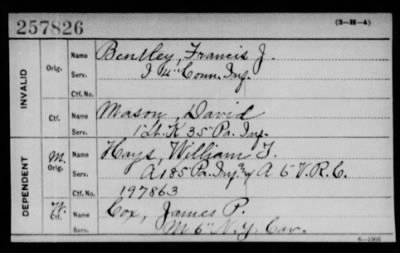 257826
(3-H-4)
INVALID
Orig.
Name Bentley, Francis J.
Serv. I 4" Conn. Inf.
Ctf. No.
Ctf.
Name Mason, David
Serv. 1 Lt. K 35 Pa. Inf.
DEPENDENT
M. Orig.
Name Hays, William F.
Serv. A 185 Pa. Inf. A 5 V. R. C.
Ctf. No. 197863
W. Ctf.
Name Cox, James P.
Serv. M 6" N. Y. Cav.